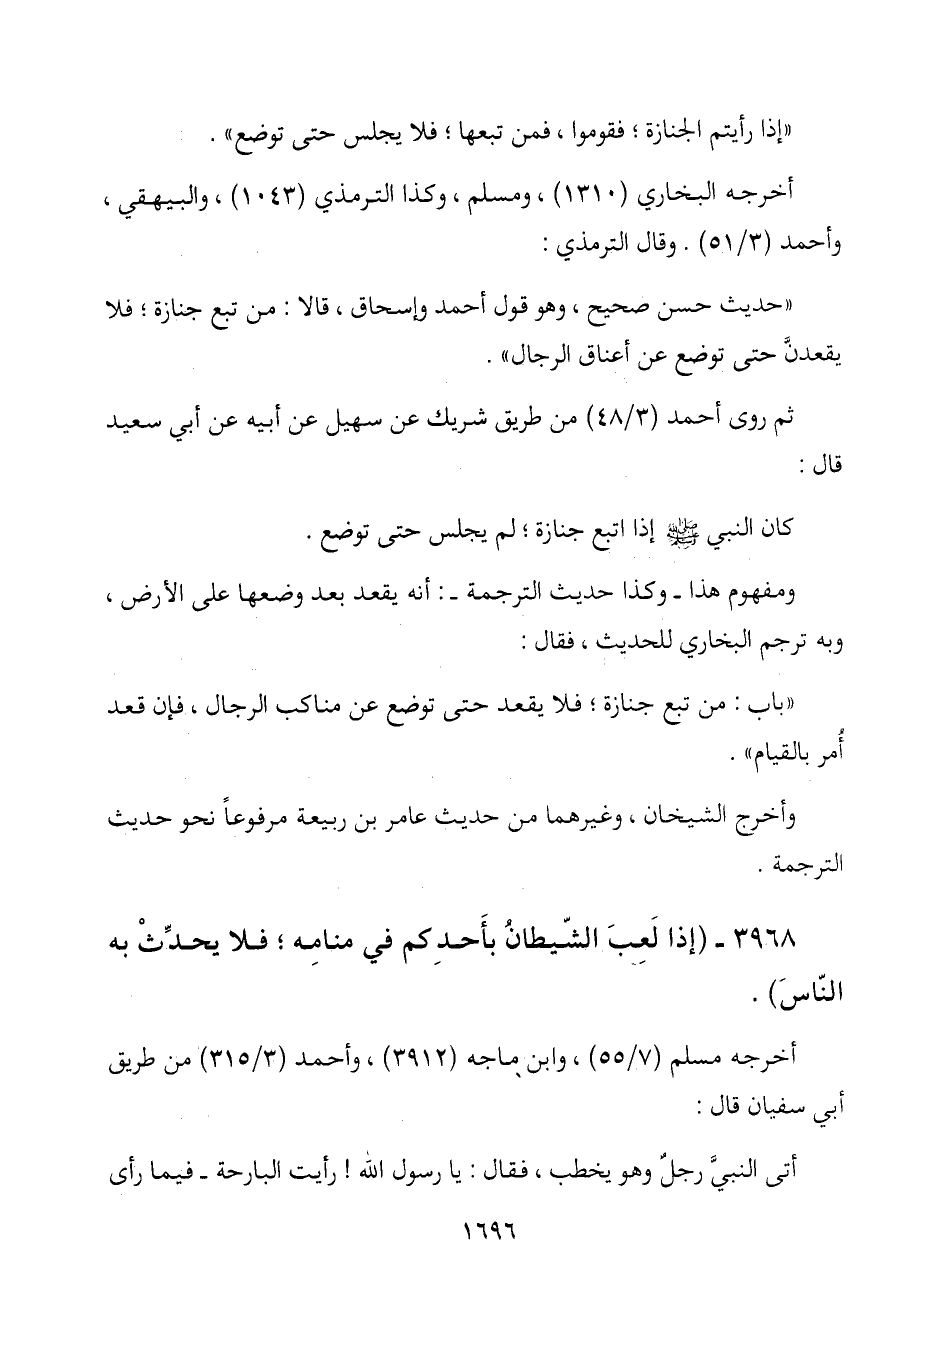 «إذا رأيتم الجنازة ؛ فقوموا ، فمن تبعها ؛ فلا يجلس حتى توضع» .
أخرجه البخاري (١٣١٠) ، ومسلم ، وكذا الترمذي (١٠٤٣) ، والبيهقي ،
وأحمد (٥١/٣) . وقال الترمذي :
«حديث حسن صحيح ، وهو قول أحمد وإسحاق ، قالا : من تبع جنازة ؛ فلا
يقعدنَّ حتى توضع عن أعناق الرجال» .
ثم روى أحمد (٤٨/٣) من طريق شريك عن سهيل عن أبيه عن أبي سعيد
قال :
كان النبي ﷺ إذا اتبع جنازة ؛ لم يجلس حتى توضع .
ومفهوم هذا ـ وكذا حديث الترجمة ـ : أنه يقعد بعد وضعها على الأرض ،
وبه ترجم البخاري للحديث ، فقال :
«باب : من تبع جنازة ؛ فلا يقعد حتى توضع عن مناكب الرجال ، فإن قعد
أُمر بالقيام» .
وأخرج الشيخان ، وغيرهما من حديث عامر بن ربيعة مرفوعاً نحو حديث
الترجمة .
٣٩٦٨ ـ (إذا لَعِبَ الشّيطانُ بأَحدِكم في منامِه ؛ فلا يحدِّثْ به
النّاسَ) .
أخرجه مسلم (٥٥/٧) ، وابن ماجه (٣٩١٢) ، وأحمد (٣١٥/٣) من طريق
أبي سفيان قال :
أتى النبيَّ رجلٌ وهو يخطب ، فقال : يا رسول الله ! رأيت البارحة ـ فيما رأى
١٦٩٦